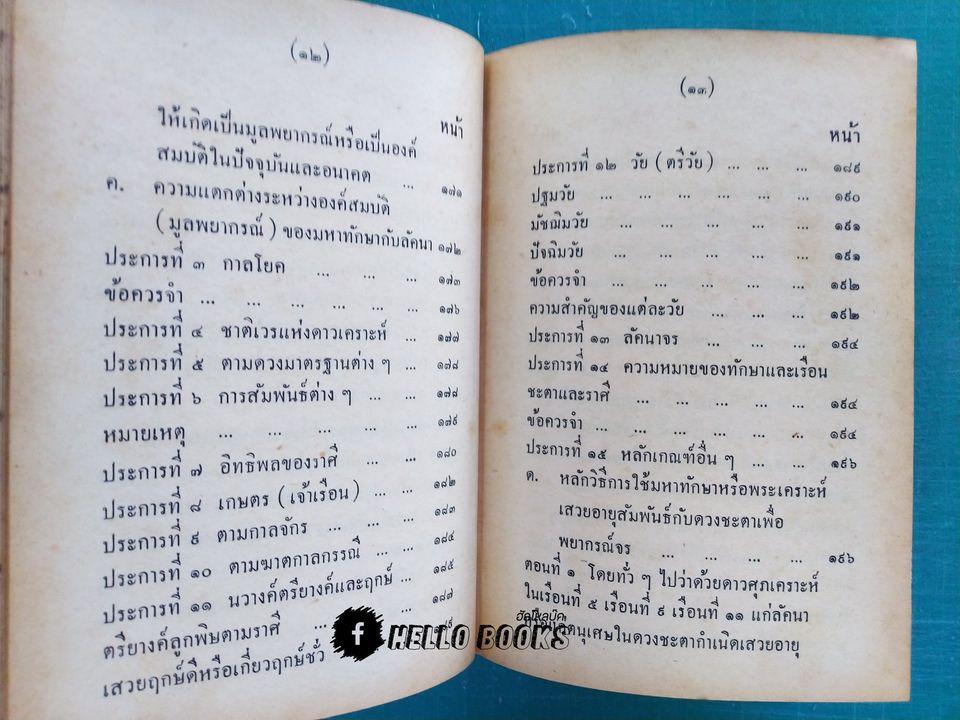 (๑๒)
หน้า
ให้เกิดเป็นมูลพยากรณ์หรือเป็นองค์
สมบัติในปัจจุบันและอนาคต ... ๑๗๑
ค. ความแตกต่างระหว่างองค์สมบัติ
(มูลพยากรณ์) ของมหาทักษากับลัคนา ๑๗๒
ประการที่ ๓ กาลโยค ... ... ... ๑๗๓
ข้อควรจำ ... ... ... ... ... ๑๗๖
ประการที่ ๔ ชาติเวรแห่งดาวเคราะห์ ... ๑๗๗
ประการที่ ๕ ตามดวงมาตรฐานต่าง ๆ ... ๑๗๘
ประการที่ ๖ การสัมพันธ์ต่าง ๆ ... ... ๑๗๘
หมายเหตุ ... ... ... ... ... ๑๗๙
ประการที่ ๗ อิทธิพลของราศี ... ... ๑๘๐
ประการที่ ๘ เกษตร (เจ้าเรือน) ... ... ๑๘๒
ประการที่ ๙ ตามกาลจักร ... ... ... ๑๘๓
ประการที่ ๑๐ ตามฆาตกาลกรรณี ... ... ๑๘๔
ประการที่ ๑๑ นวางค์ตรียางค์และฤกษ์ ... ๑๘๕
ตรียางค์ลูกพิษตามราศี ... ... ๑๘๗
เสวยฤกษ์ดีหรือเกี่ยวฤกษ์ชั่ว
(๑๓)
หน้า
ประการที่ ๑๒ วัย (ตรีวัย) ... ... ... ๑๘๙
ปฐมวัย ... ... ... ... ... ๑๙๐
มัชฌิมวัย ... ... ... ... ... ๑๙๑
ปัจฉิมวัย ... ... ... ... ... ๑๙๑
ข้อควรจำ ... ... ... ... ... ๑๙๒
ความสำคัญของแต่ละวัย ... ... ... ๑๙๒
ประการที่ ๑๓ ลัคนาจร ... ... ... ๑๙๔
ประการที่ ๑๔ ความหมายของทักษาและเรือน
ชะตาและราศี ... ... ... ... ๑๙๔
ข้อควรจำ ... ... ... ... ... ๑๙๔
ประการที่ ๑๕ หลักเกณฑ์อื่น ๆ ... ... ๑๙๖
ด. หลักวิธีการใช้มหาทักษาหรือพระเคราะห์
เสวยอายุสัมพันธ์กับดวงชะตาเพื่อ
พยากรณ์จร ... ... ... ... ๑๙๖
ตอนที่ ๑ โดยทั่ว ๆ ไปว่าด้วยดาวศุภเคราะห์
ในเรือนที่ ๕ เรือนที่ ๙ เรือนที่ ๑๑ แก่ลัคนา
ตนุเศษในดวงชะตากำเนิดเสวยอายุ
ฮัลโหลบุ๊ค
f HELLO BOOKS